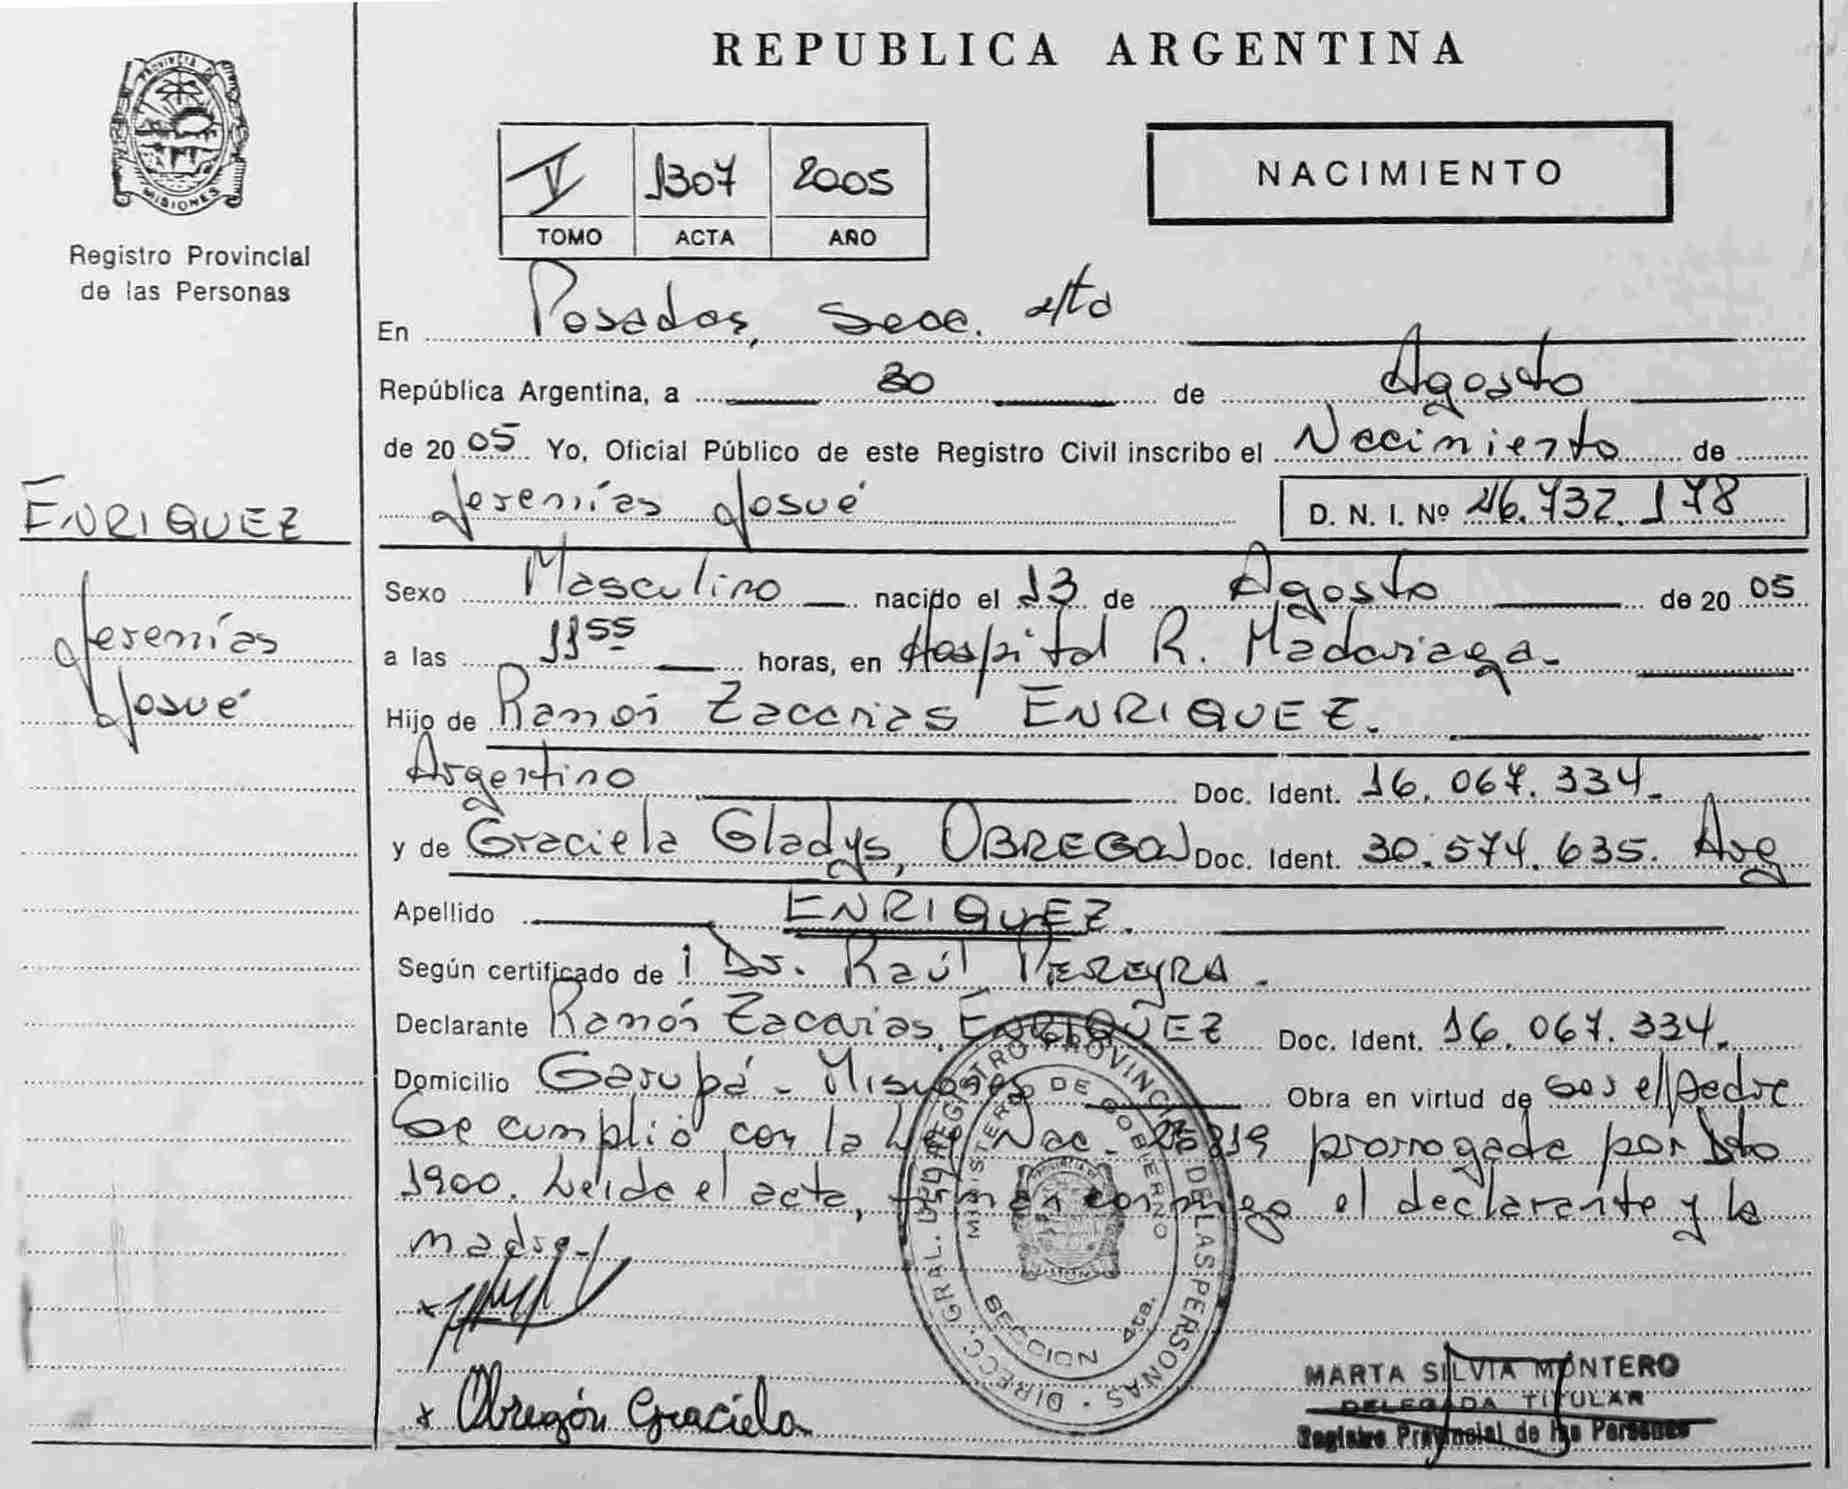 REPUBLICA ARGENTINA
PROVINCIA DE
MISIONES
Registro Provincial
de las Personas
V 1307 2005
TOMO ACTA AÑO
NACIMIENTO
En Posadas, Secc. 4ta
República Argentina, a 30 de Agosto
de 2005 Yo, Oficial Público de este Registro Civil inscribo el Nacimiento de
Jeremías Josué D. N. I. Nº 46.732.178
ENRIQUEZ
Jeremías
Josué
Sexo Masculino nacido el 13 de Agosto de 2005
a las 11 55 horas, en Hospital R. Madariaga.
Hijo de Ramón Zacarias ENRIQUEZ.
Argentino Doc. Ident. 16.067.334.
y de Graciela Gladys, OBREGON Doc. Ident. 30.574.635. Arg
Apellido ENRIQUEZ.
Según certificado de Dr. Raúl PEREYRA.
Declarante Ramón Zacarias, ENRIQUEZ Doc. Ident. 16.067.334.
Domicilio Garupá - Misiones Obra en virtud de ser el padre
Se cumplió con la Ley Nac. 25819 prorrogada por Dto
1900. Leída el acta, firman conmigo el declarante y la
madre.
x
x Obregón Graciela
DIRECC. GRAL. DEL REGISTRO PROVINCIAL DE LAS PERSONAS
MINISTERIO DE GOBIERNO
SECCION 4ta.
MARTA SILVIA MONTERO
DELEGADA TITULAR
Registro Provincial de las Personas